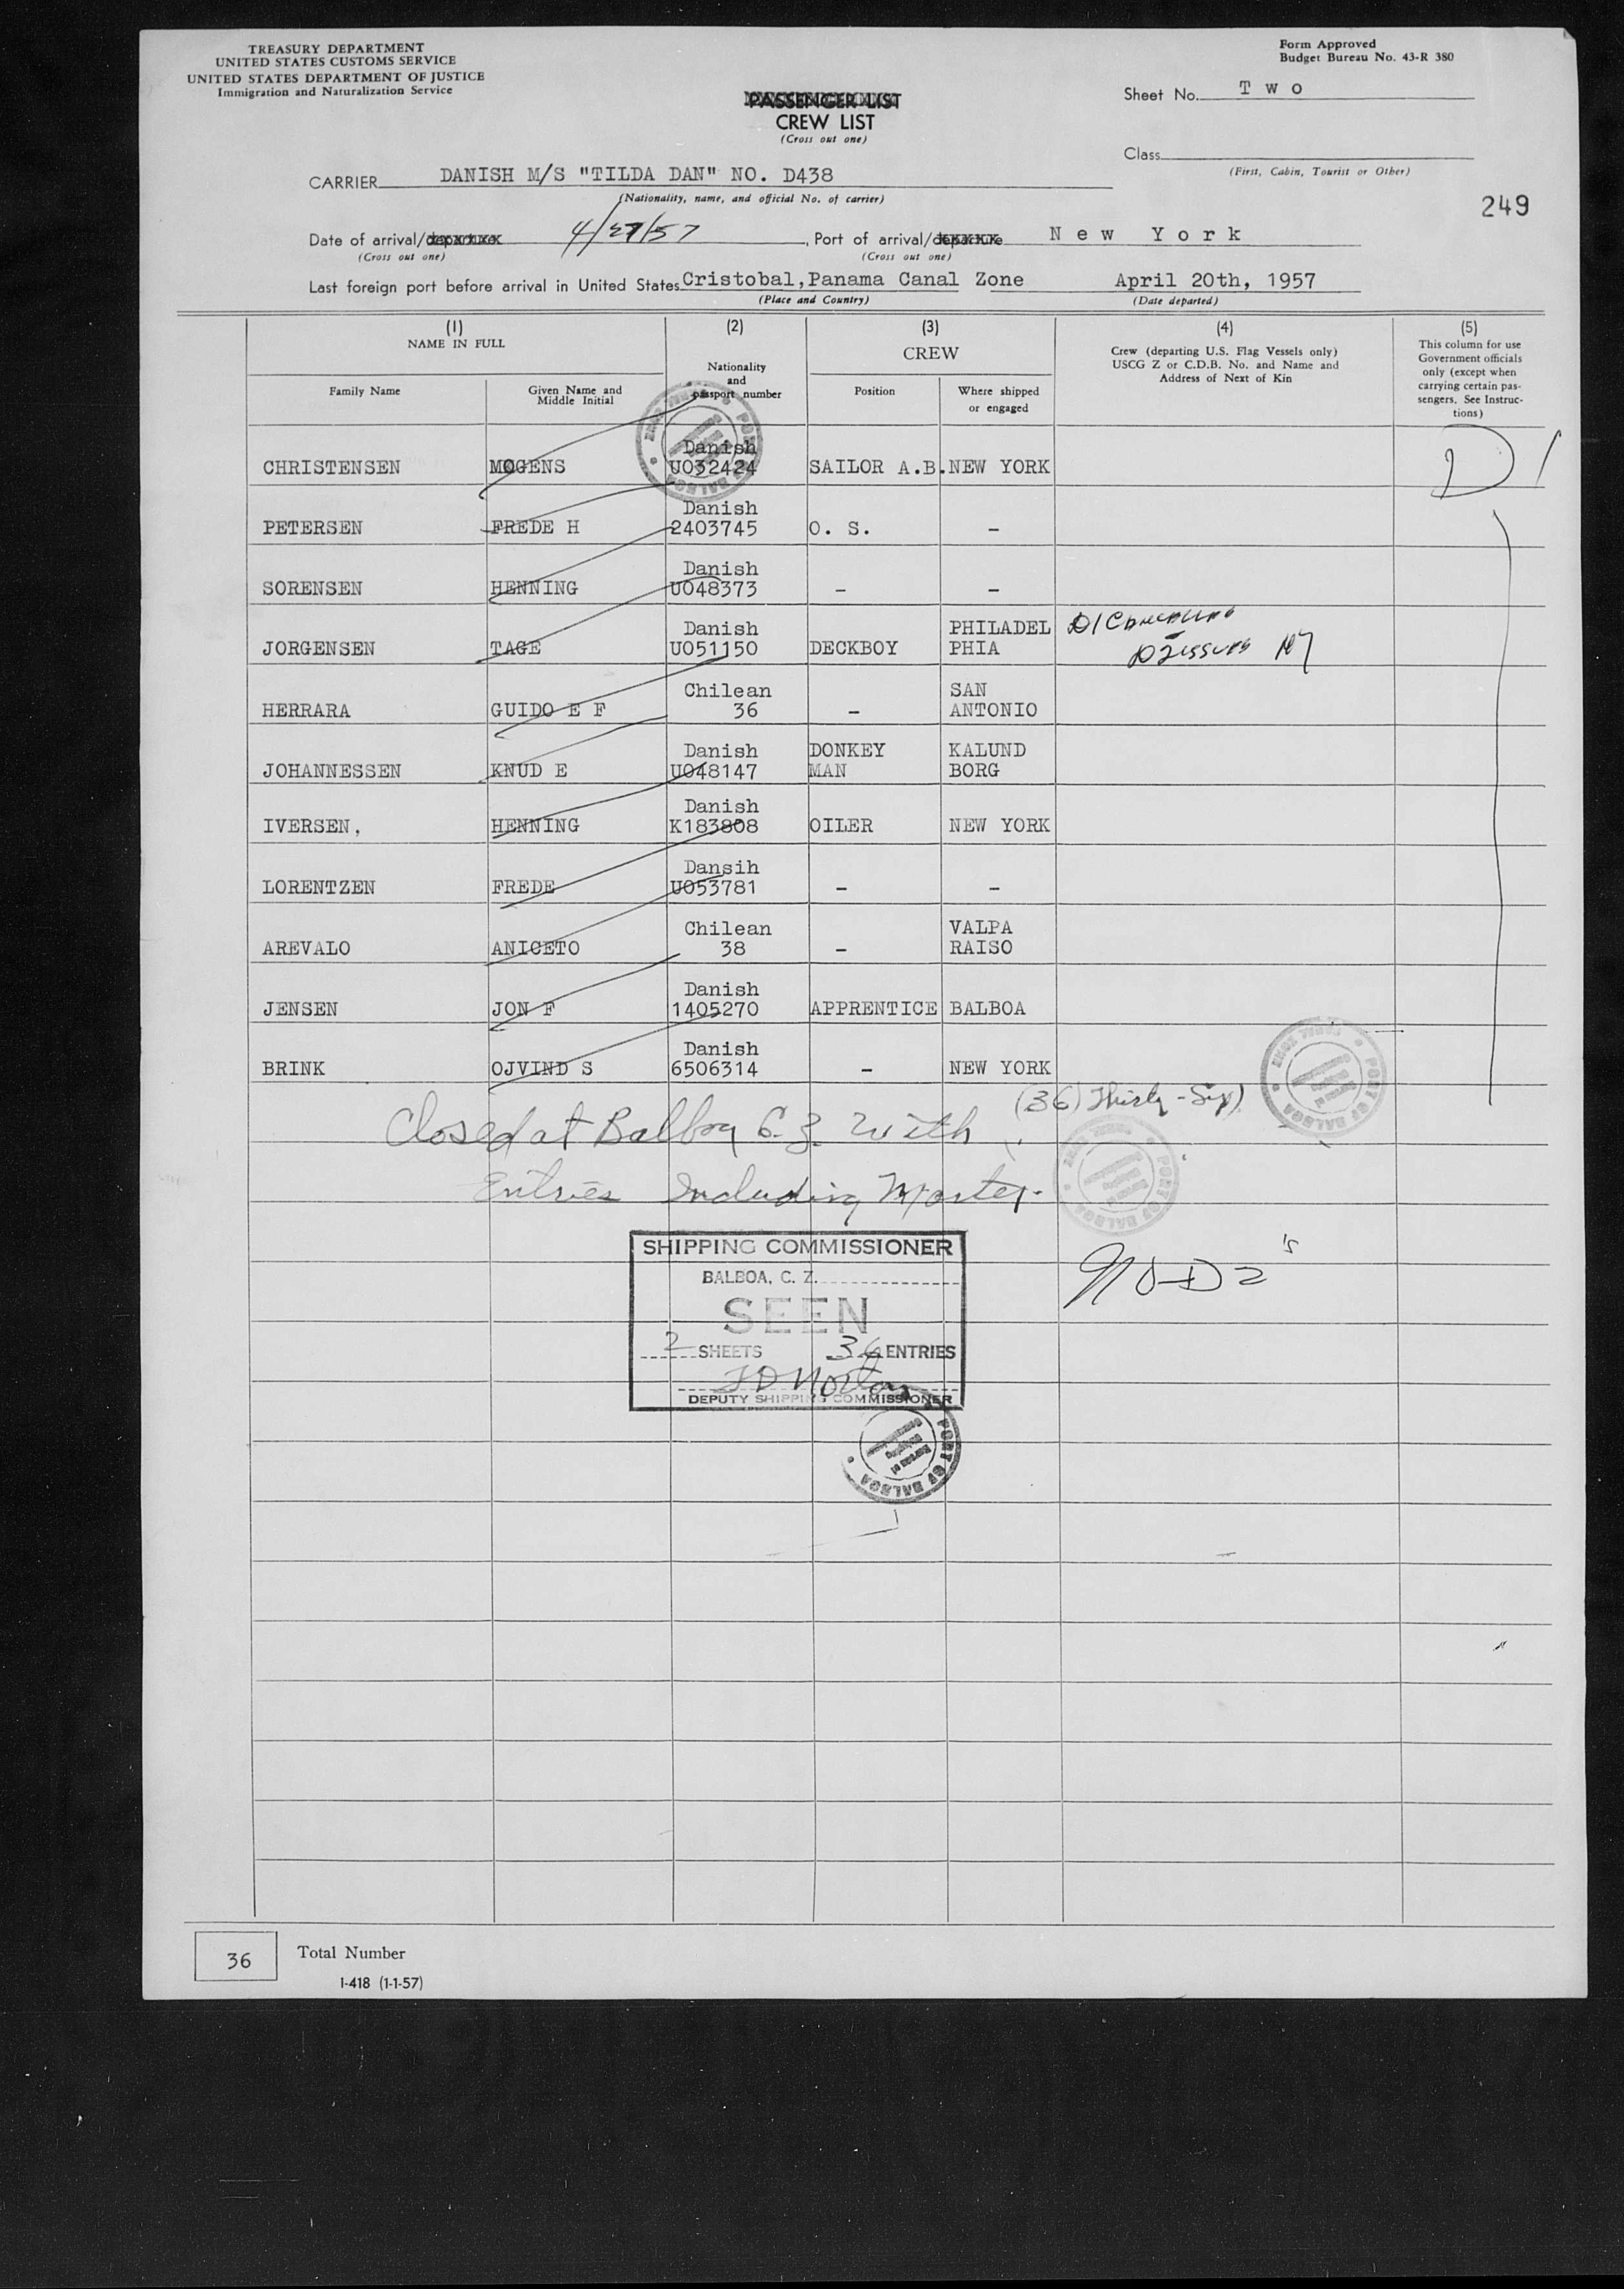 TREASURY DEPARTMENT
UNITED STATES CUSTOMS SERVICE
UNITED STATES DEPARTMENT OF JUSTICE
Immigration and Naturalization Service
Form Approved
Budget Bureau No. 43-R 380
PASSENGER LIST
CREW LIST
(Cross out one)
Sheet No. T w o
Class
(First, Cabin, Tourist or Other)
CARRIER DANISH M/S "TILDA DAN" NO. D438
(Nationality, name, and official No. of carrier)
249
Date of arrival/departure 4/27/57, Port of arrival/departure N e w Y o r k
(Cross out one) (Cross out one)
Last foreign port before arrival in United States Cristobal,Panama Canal Zone April 20th, 1957
(Place and Country) (Date departed)
(1) (2) (3) (4) (5)
NAME IN FULL
Family Name
Given Name and
Middle Initial
Nationality
and
passport number
CREW
Position
Where shipped
or engaged
Crew (departing U.S. Flag Vessels only)
USCG Z or C.D.B. No. and Name and
Address of Next of Kin
This column for use
Government officials
only (except when
carrying certain pas-
sengers. See Instruc-
tions)
Danish
CHRISTENSEN MOGENS U032424 SAILOR A.B. NEW YORK D 1
Danish
PETERSEN FREDE H 2403745 O. S. -
Danish
SORENSEN HENNING U048373 - -
Danish PHILADEL
JORGENSEN TAGE U051150 DECKBOY PHIA
Chilean SAN
HERRARA GUIDO E F 36 - ANTONIO
Danish DONKEY KALUND
JOHANNESSEN KNUD E U048147 MAN BORG
Danish
IVERSEN, HENNING K183808 OILER NEW YORK
Dansih
LORENTZEN FREDE U053781 - -
Chilean VALPA
AREVALO ANICETO 38 - RAISO
Danish
JENSEN JON F 1405270 APPRENTICE BALBOA
Danish
BRINK OJVIND S 6506314 - NEW YORK
Closed at Balboa C.Z. With (36) Thirty-Six)
Entries Including Master.
PORT OF BALBOA
SHIPPING COMMISSIONER
BALBOA, C. Z.
SEEN
2 SHEETS 36 ENTRIES
DEPUTY SHIPPING COMMISSIONER
NO-D2's
PORT OF BALBOA
36 Total Number
I-418 (1-1-57)